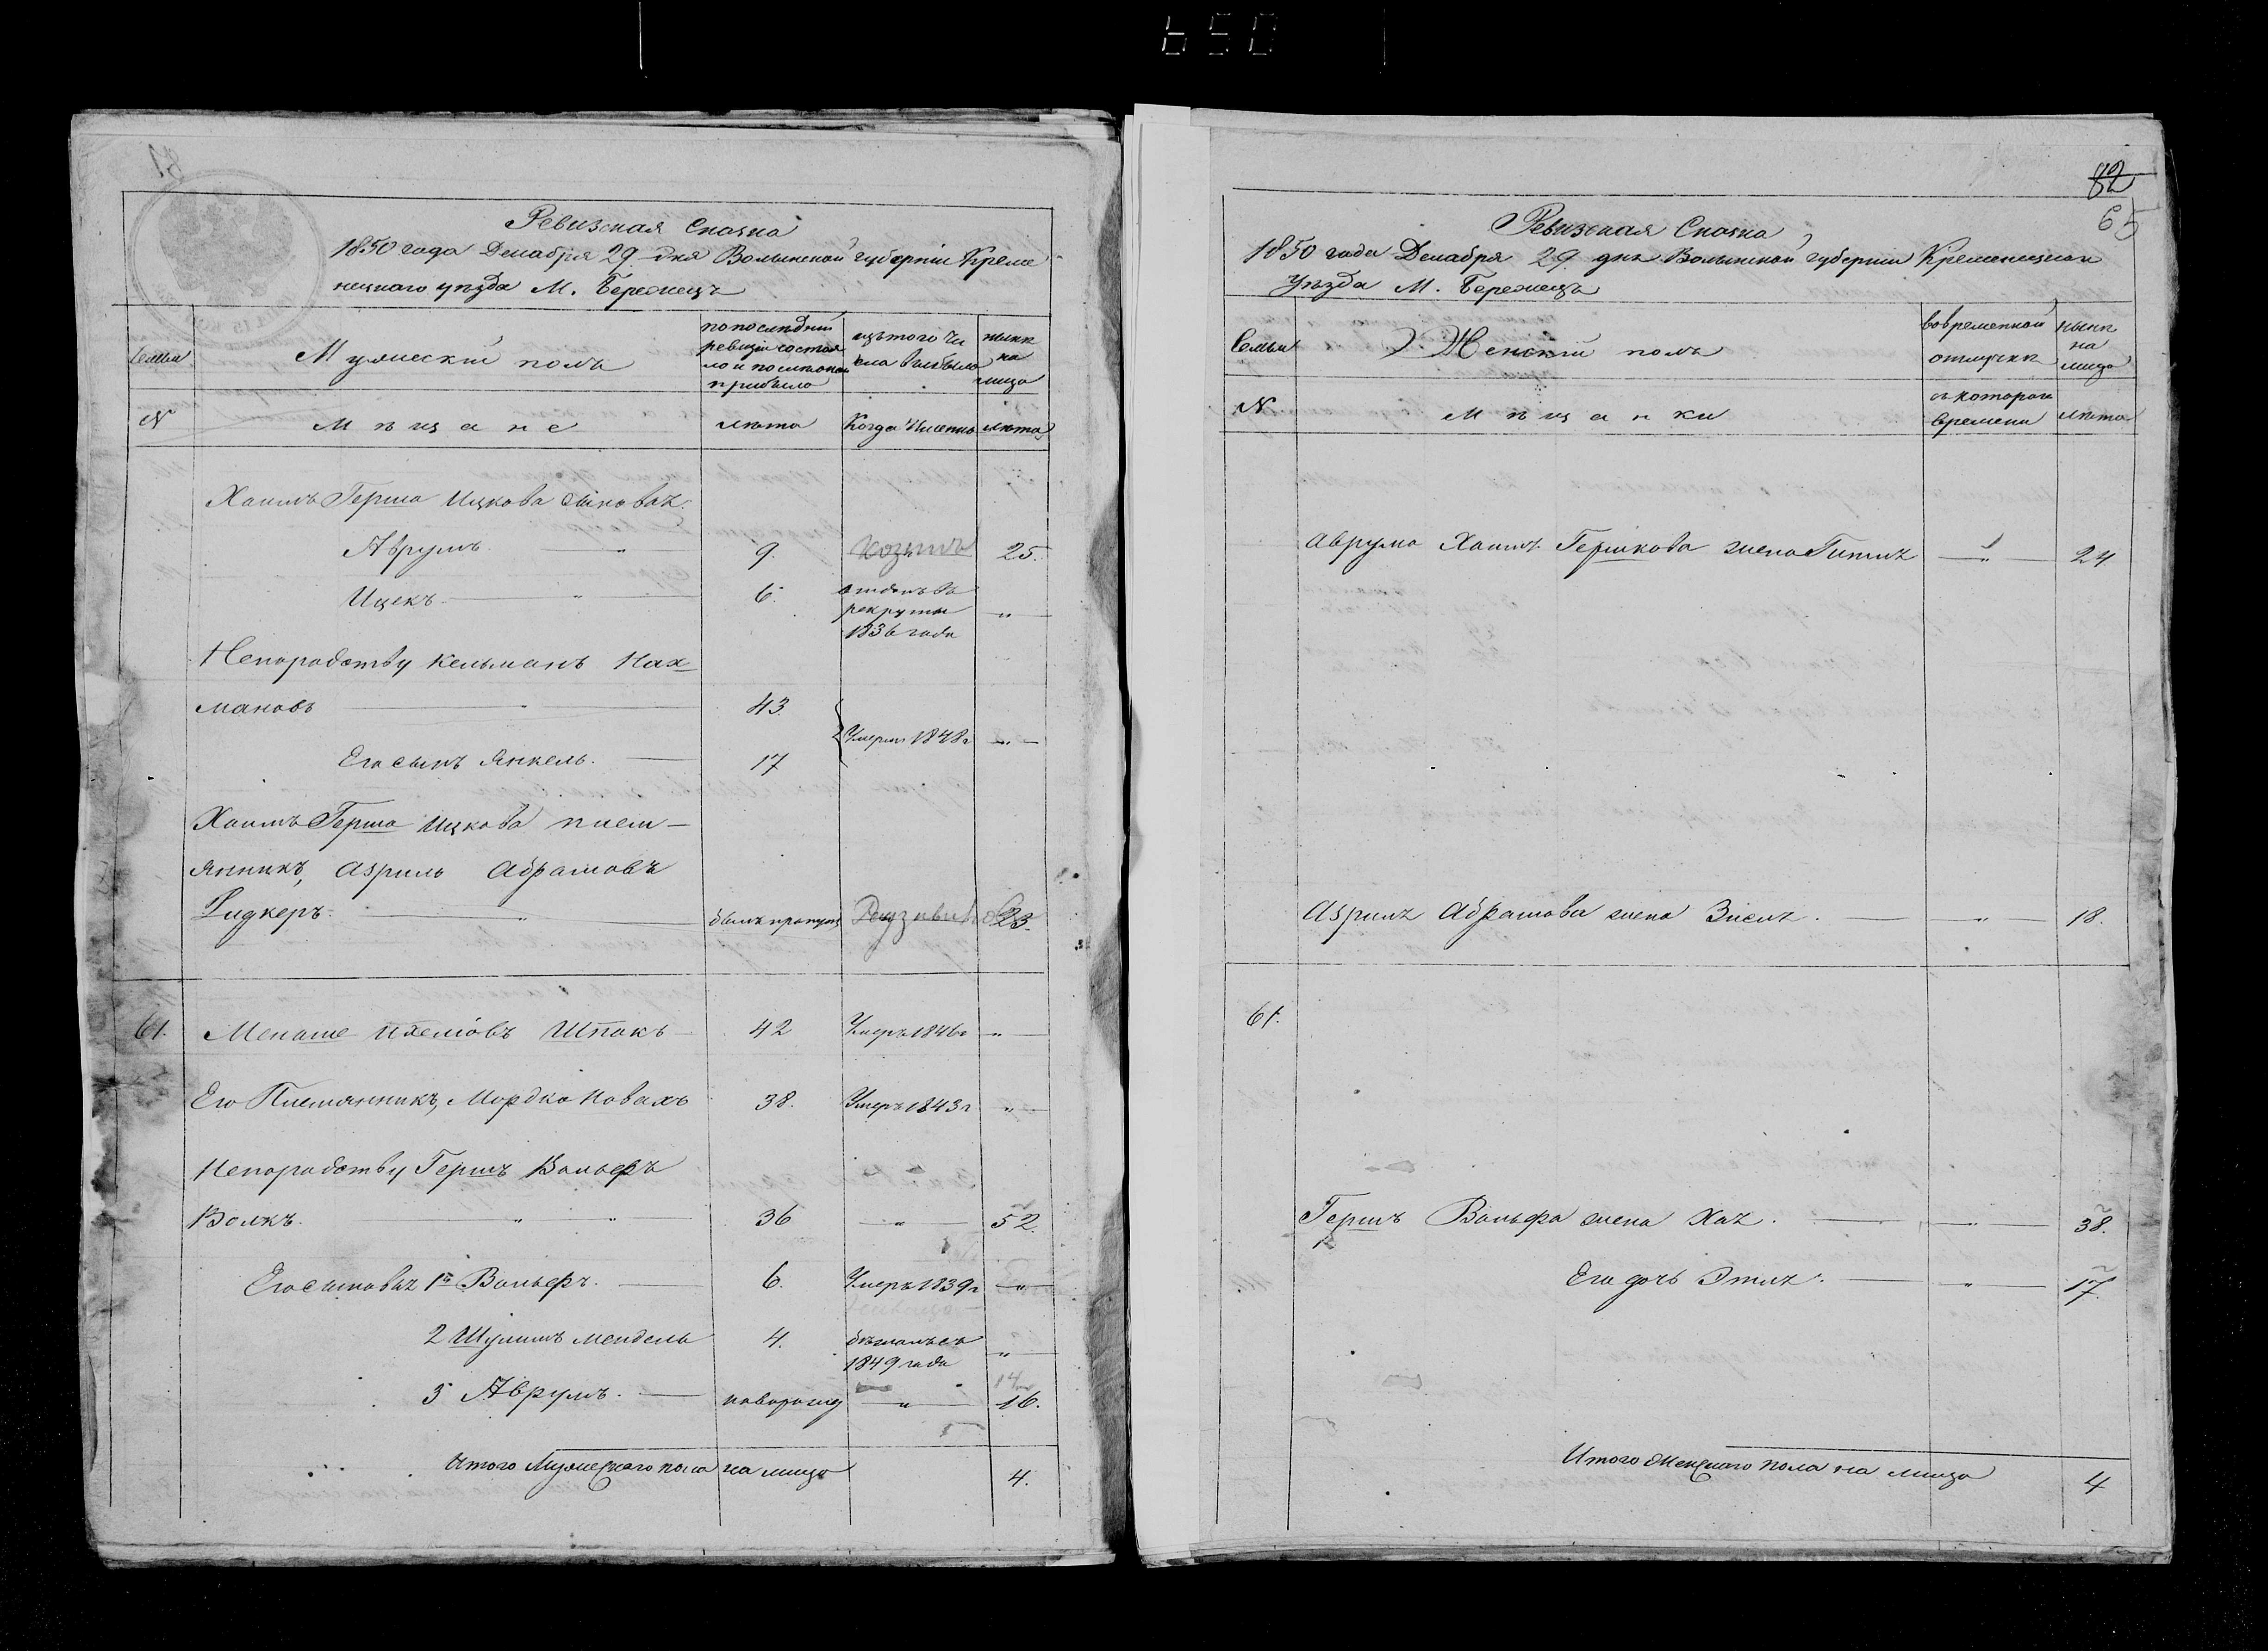 650
81
Ревизская Сказка
1850 года Декабря 29 дня Волынской губернии Креме
нецкаго уезда М. Бережецъ
Семьи
Мужескій полъ
по последней
ревизіи состоя
ло и после оной
прибыло
изъ того чи
сла выбыло
ныне
на
лицо
N
Мещане
лета
Когда Именно
лета
Хаимъ Герша Ицкова сыновья:
Аврумъ 9. Козинъ 25.
Ицекъ 6. отданъ въ
рекруты "
1836 года
Непородству Кельманъ Нах
мановъ 43
Умерли 1848г "
Его сынъ Янкель. 17
Хаимъ Герша Ицкова плем-
янникъ, Азриль Абрамовъ
Ридкеръ. " былъ пропущ 23.
61. Менаше Ихелiовъ Шпакъ 42 Умеръ 1846г "
Его Племянникъ, Мордко Новахъ 38. Умеръ 1843г "
Непородству Гершъ Вольфъ
Волкъ. " " 36 " 52.
Его сыновья 1й Вольфъ. 6. Умеръ 1839г "
2 Шулимъ Мендель 4. бежалъ съ "
1849 года
14
3 Аврумъ. новорожд " 16.
Итого Мужескаго пола на лицо 4.
82
65
Ревизская Сказка
1850 года Декабря 29 дня Волынской губернии Кременецкаго
Уезда М. Бережецъ
Семьи
Женскій полъ
во временной
отлучке
ныне
на
лицо
N
Мещанки
съ котораго
времени
лета
Аврума Хаимъ Гершкова жена Гитля " 24
Азриля Абрамова жена Зисля. " 18.
61.
Гершъ Вольфа жена Хая. " 38.
Его дочь Этля. " 17.
Итого Женскаго пола на лицо 4